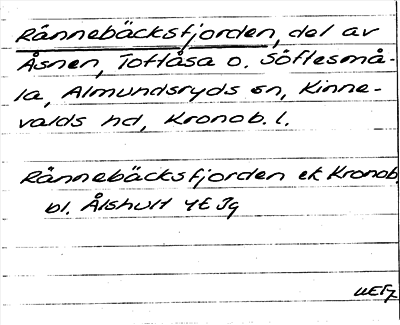 Rännebäcksfjorden, del av
Åsnen, Toftåsa o. Söftesmå-
la, Almundsryds sn, Kinne-
valds hd, Kronob. l.
Rännebäcksfjorden ek Kronob.
bl. Ålshult 4E Jg